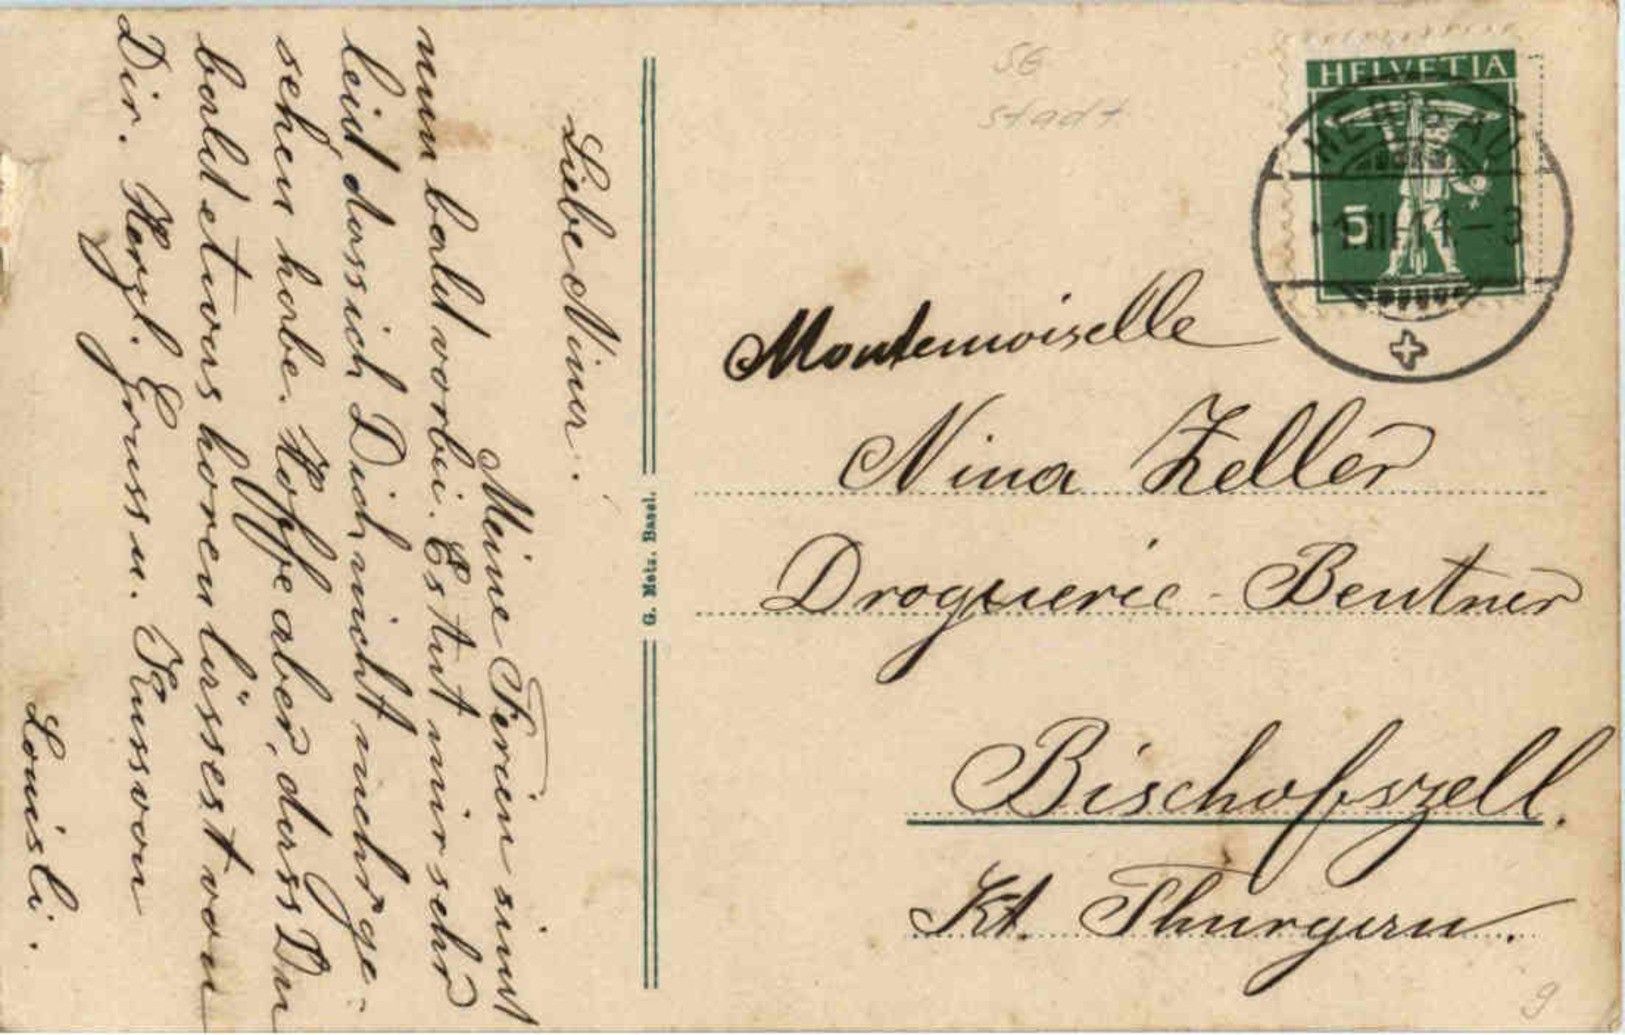 Liebe Nina.
Meine Ferien sind
nun bald vorbei. Es tut mir sehr
leid, dass ich Dich nicht mehr ge-
sehen habe. Hoffe aber, dass Du
bald etwas hören lässest von
Dir. Herzl. Gruss u. Kuss von
Louisli.
G. Metz. Basel.
SG
Stadt
HELVETIA
5
HERISAU
1.III.11.-3
Mademoiselle
Nina Zeller
Droguerie - Beutner
Bischofszell.
Kt. Thurgau.
9